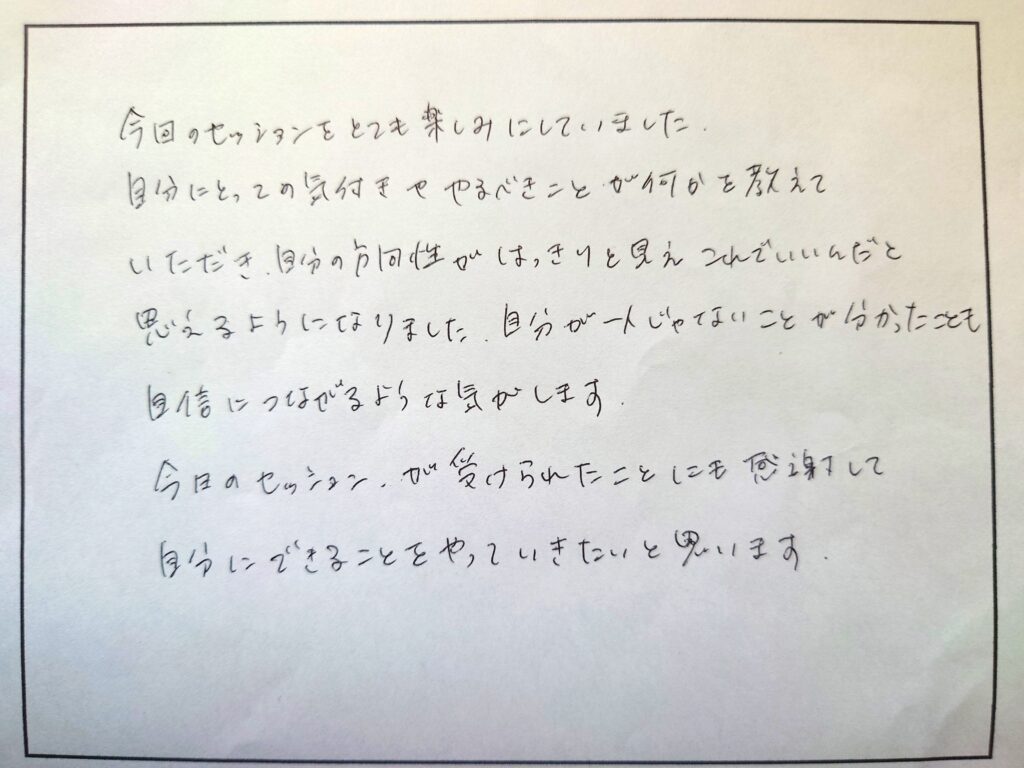 今回のセッションをとても楽しみにしていました.
自分にとっての気付きややるべきことが何かを教えて
いただき.自分の方向性がはっきりと見えこれでいいんだと
思えるようになりました.自分が一人じゃないことが分かったことも
自信につながるような気がします.
今日のセッション.が受けられたことにも感謝して
自分にできることをやっていきたいと思います.